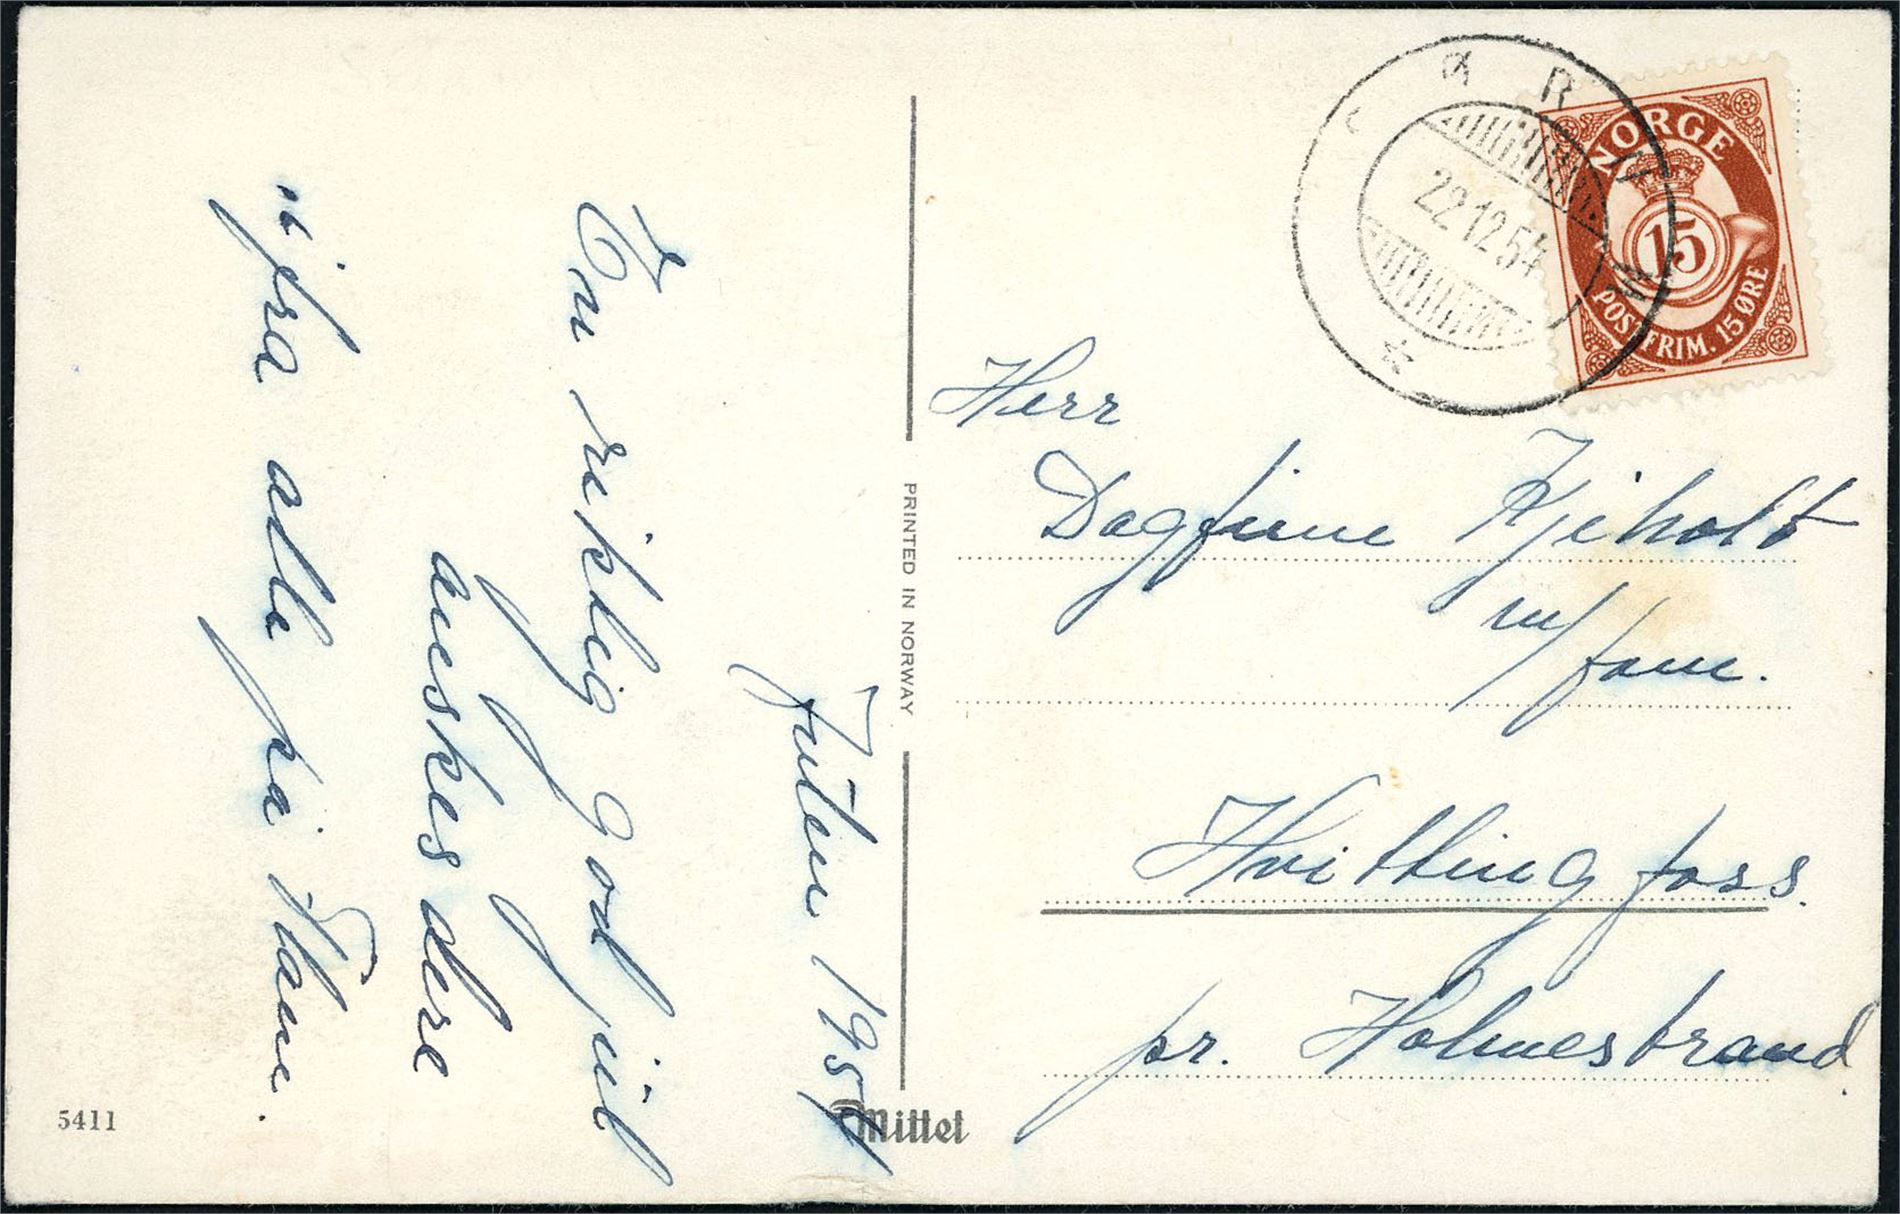 Julen 1954
En riktig god jul
ønskes dere
ifra alle på
Herr
Dagfinn Kjeholt
m/fam.
Hvittingfoss.
pr. Holmestrand.
NORGE
15
POSTFRIM. 15 ØRE
22 12 54
PRINTED IN NORWAY
Mittet
5411